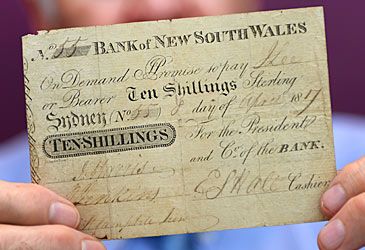 No. 55 BANK of NEW SOUTH WALES
On Demand I Promise to pay
or Bearer Ten Shillings Sterling
Sydney (No 55 8 day of April 1817
TEN SHILLINGS For the President
and Co. of the BANK,
Jenkins E S Hall Cashier